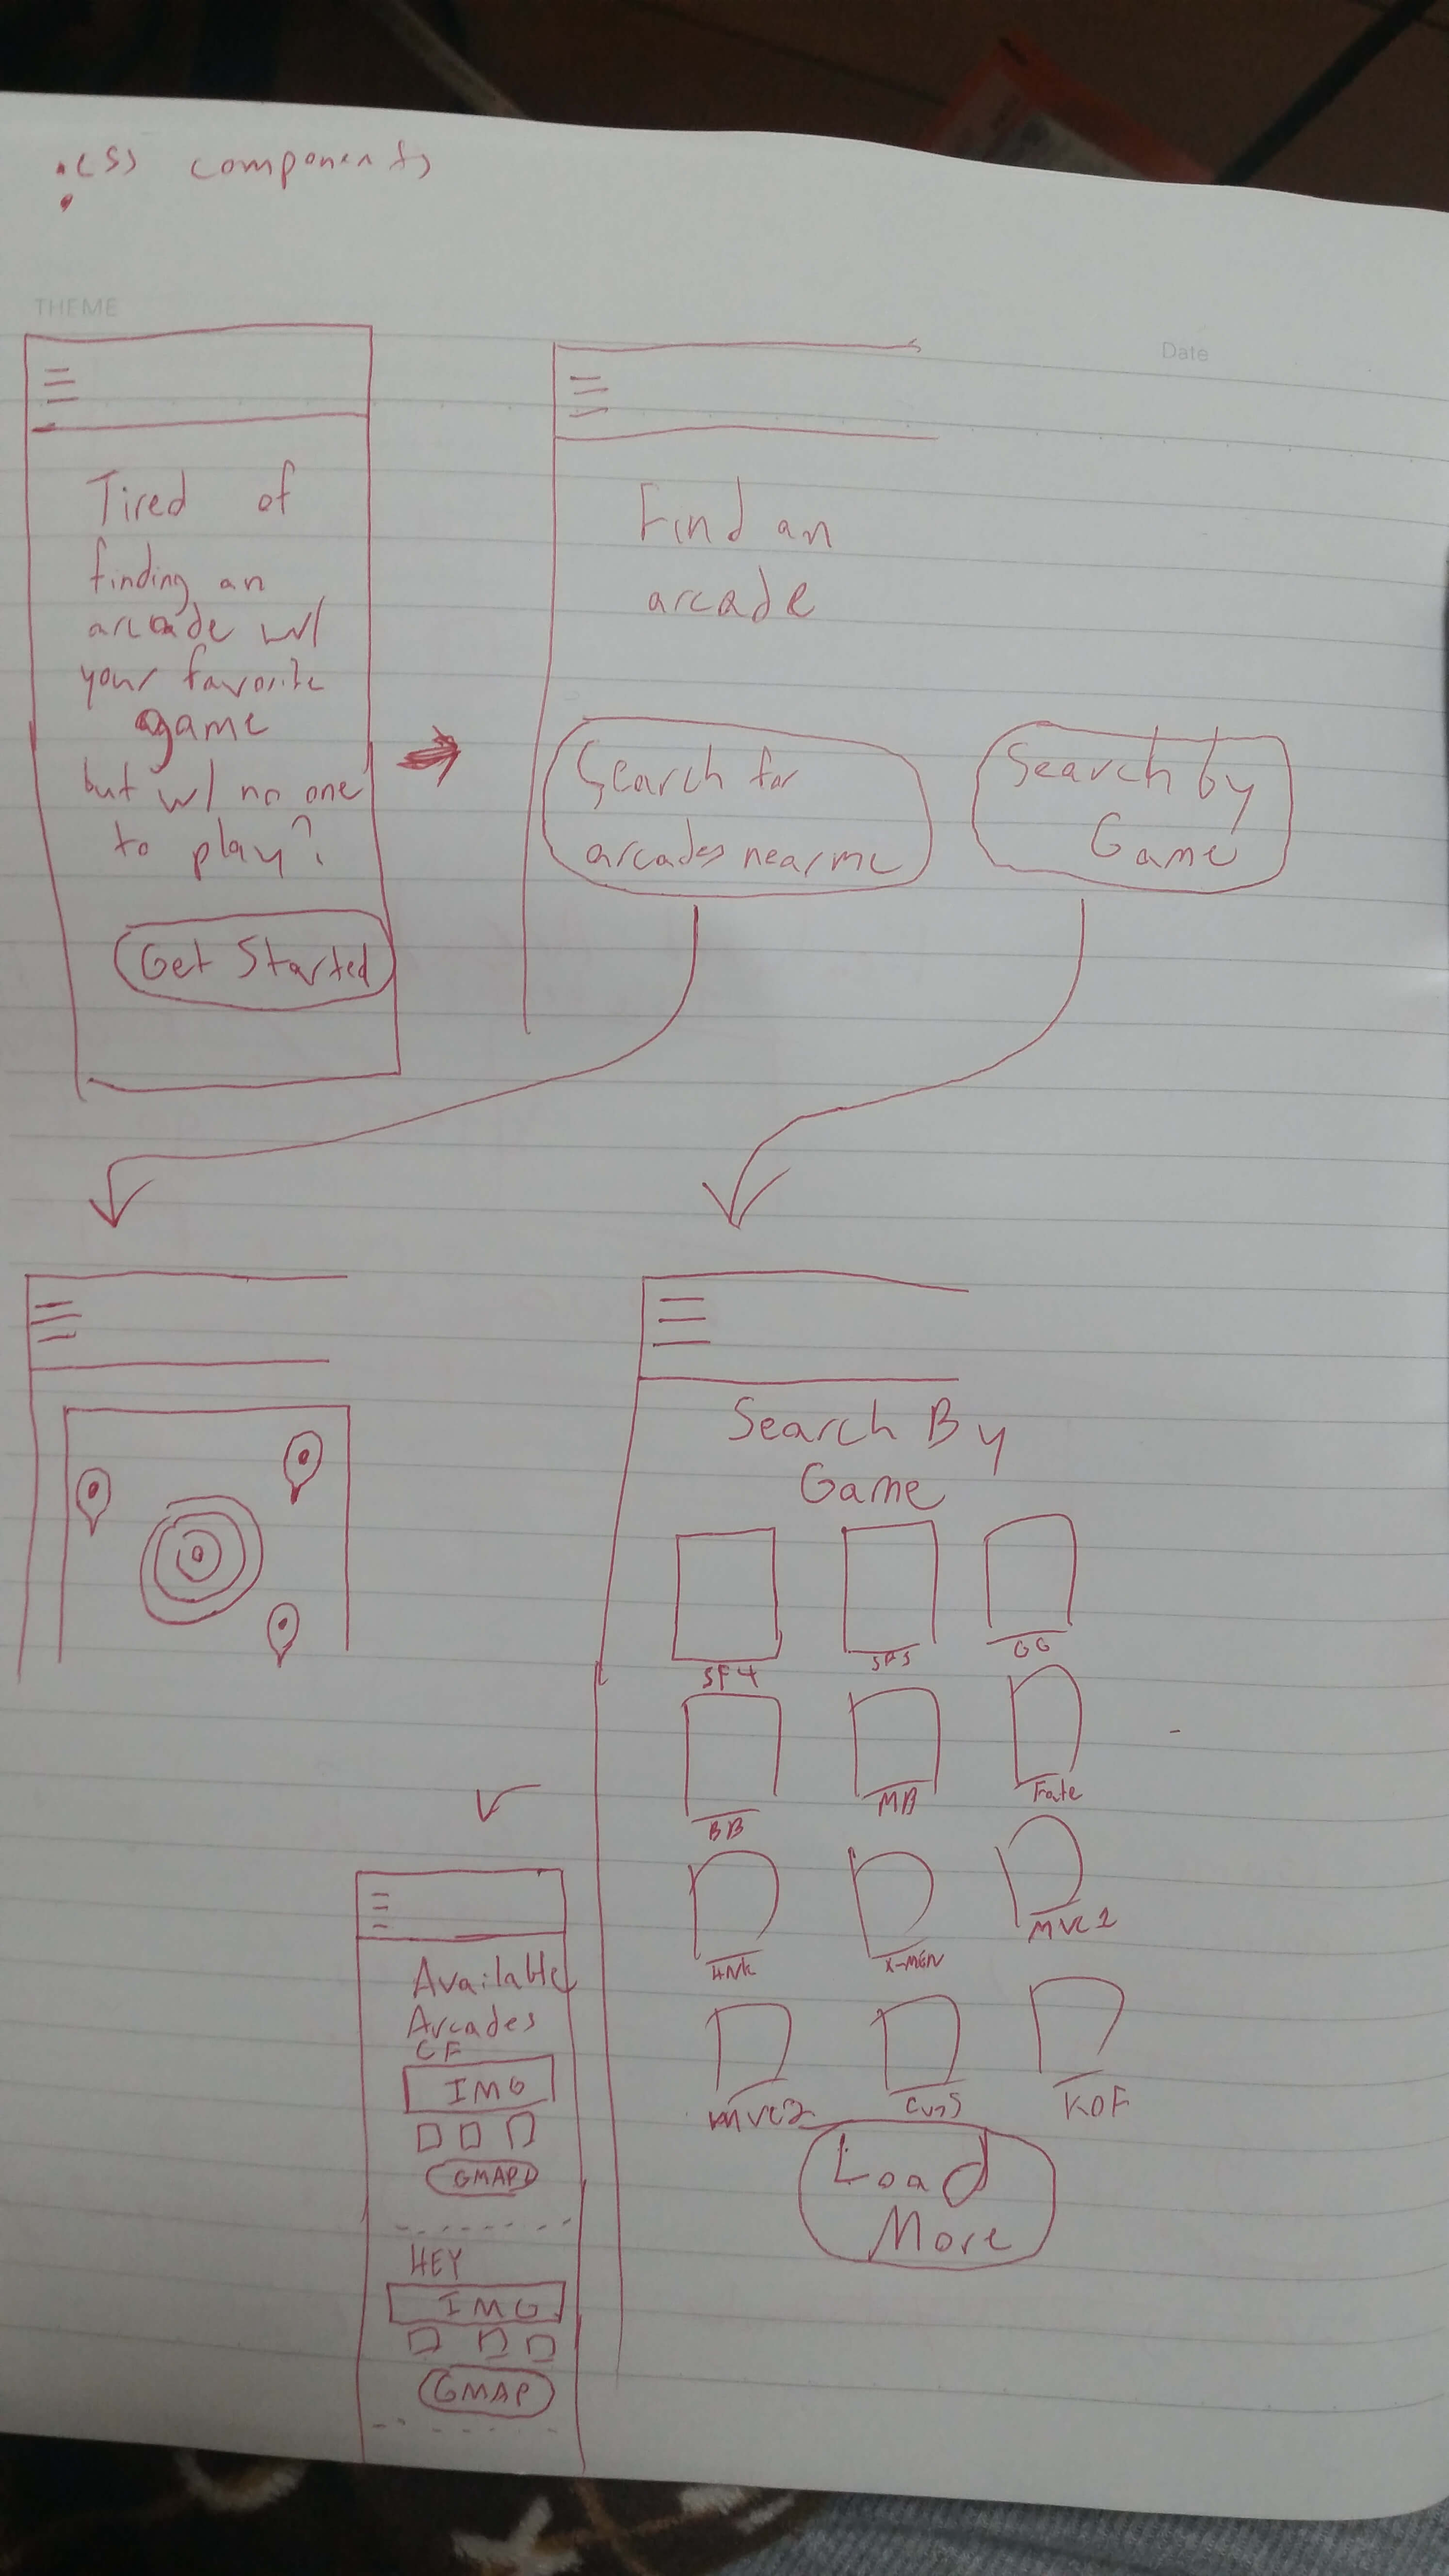 .css components
THEME
Date
Tired of
finding an
arcade w/
your favorite
game
but w/ no one
to play?
Get Started
Find an
arcade
Search for
arcades near me
Search by
Game
Search By
Game
SF4
GG
BB
MB
Fate
HNK
X-MEN
MVC1
MVC2
KOF
Load
More
Available
Arcades
CF
IMG
GMAP
HEY
IMG
GMAP